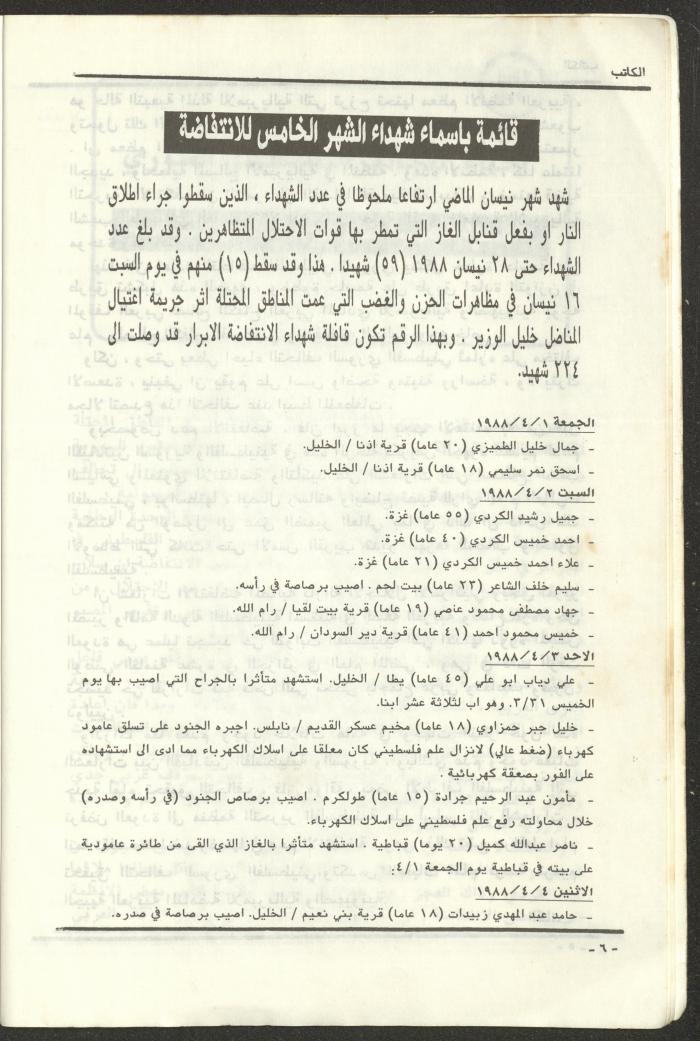 الكاتب
قائمة باسماء شهداء الشهر الخامس للانتفاضة
شهد شهر نيسان الماضي ارتفاعا ملحوظا في عدد الشهداء ، الذين سقطوا جراء اطلاق
النار او بفعل قنابل الغاز التي تمطر بها قوات الاحتلال المتظاهرين . وقد بلغ عدد
الشهداء حتى ٢٨ نيسان ١٩٨٨ (٥٩) شهيدا . هذا وقد سقط (١٥) منهم في يوم السبت
١٦ نيسان في مظاهرات الحزن والغضب التي عمت المناطق المحتلة اثر جريمة اغتيال
المناضل خليل الوزير . وبهذا الرقم تكون قافلة شهداء الانتفاضة الابرار قد وصلت الى
٢٢٤ شهيد.
الجمعة ١٩٨٨/٤/١
- جمال خليل الطميزي (٢٠ عاما) قرية اذنا / الخليل.
- اسحق نمر سليمي (١٨ عاما) قرية اذنا / الخليل.
السبت ١٩٨٨/٤/٢
- جميل رشيد الكردي (٥٥ عاما) غزة.
- احمد خميس الكردي (٤٠ عاما) غزة.
- علاء احمد خميس الكردي (٢١ عاما) غزة.
- سليم خلف الشاعر (٢٣ عاما) بيت لحم . اصيب برصاصة في رأسه.
- جهاد مصطفى محمود عاصي (١٩ عاما) قرية بيت لقيا / رام الله.
- خميس محمود احمد (٤١ عاما) قرية دير السودان / رام الله.
الاحد ١٩٨٨/٤/٣
- علي دياب ابو علي (٤٥ عاما) يطا / الخليل. استشهد متأثرا بالجراح التي اصيب بها يوم
الخميس ٣/٣١. وهو اب لثلاثة عشر ابنا.
- خليل جبر حمزاوي (١٨ عاما) مخيم عسكر القديم / نابلس. اجبره الجنود على تسلق عامود
كهرباء (ضغط عالي) لانزال علم فلسطيني كان معلقا على اسلاك الكهرباء مما ادى الى استشهاده
على الفور بصعقة كهربائية .
- مأمون عبد الرحيم جرادة (١٥ عاما) طولكرم . اصيب برصاص الجنود (في رأسه وصدره)
خلال محاولته رفع علم فلسطيني على اسلاك الكهرباء.
- ناصر عبدالله كميل (٢٠ يوما) قباطية . استشهد متأثرا بالغاز الذي القى من طائرة عامودية
على بيته في قباطية يوم الجمعة ٤/١.
الاثنين ١٩٨٨/٤/٤
- حامد عبد المهدي زبيدات (١٨ عاما) قرية بني نعيم / الخليل. اصيب برصاصة في صدره.
- ٦ -